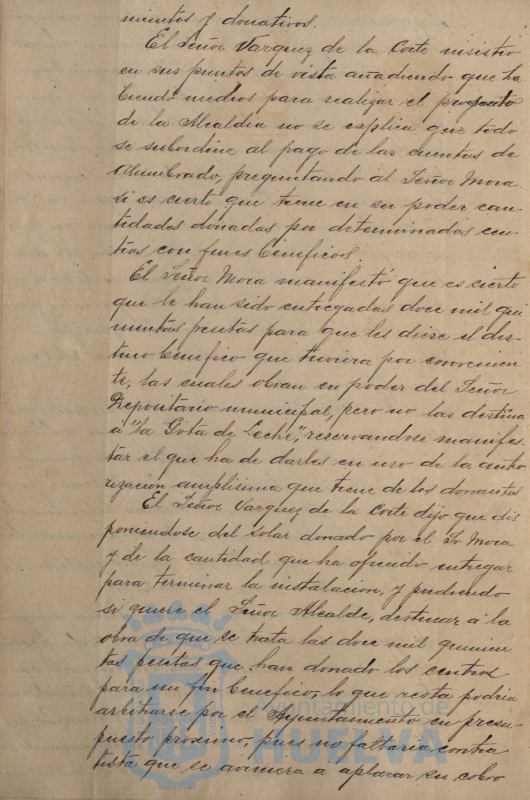 mientos y donativos.
El Señor Vazquez de la Corte insistió
en sus puntos de vista añadiendo que ha
biendo medios para realizar el proposito
de la Alcaldia no se explica que todo
se subordine al pago de las cuentas de
alumbrado, preguntando al Señor Mora
si es cierto que tiene en su poder can
tidades donadas por determinados cen
tros con fines beneficos.
El Señor Mora manifestó que es cierto
que le han sido entregadas doce mil qui
nientas pesetas para que les diese el des
tino benefico que tuviera por convenien
te, las cuales obran en poder del Señor
Depositario municipal, pero no las destina
á "La Gota de Leche", reservandose manifes
tar el que ha de darles en uso de la auto
rización amplisima que tiene de los donantes
El Señor Vazquez de la Corte dijo que dis
poniendose del solar donado por el Sr Mora
y de la cantidad que ha ofrecido entregar
para terminar la instalacion, y pudiendo
si quiere el Señor Alcalde, destinar á la
obra de que se trata las doce mil quinien
tas pesetas que han donado los centros
para un fin benefico, lo que resta podria
arbitrarse por el Ayuntamiento en presu
puesto proximo, pues no faltaria contra
tista que se aviniera a aplazar su cobro
Ayuntamiento de
HUELVA